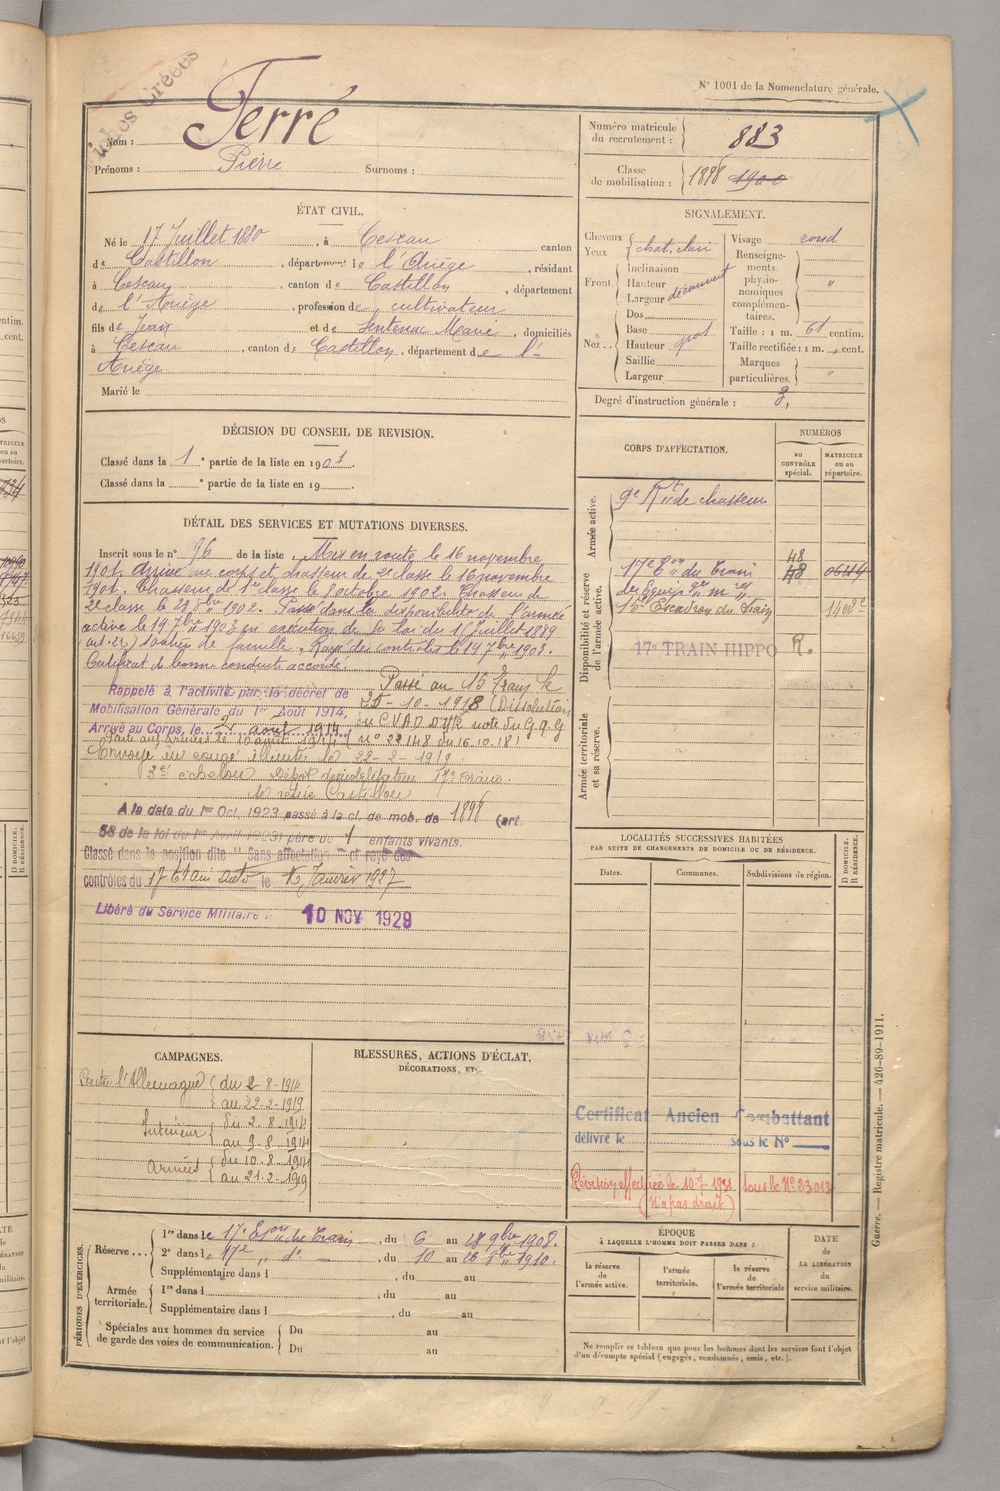 N° 1001 de la Nomenclature générale.
Fiches Créées
Nom : Ferré
Prénoms : Pierre Surnoms :
Numéro matricule du recrutement : 883
Classe de mobilisation : 1898 1900
ÉTAT CIVIL.
Né le 17 Juillet 1880, à Cescau canton
de Castillon, département de l'Ariège, résidant
à Cescau, canton de Castillon, département
de l'Ariège, profession de cultivateur
fils de Jean et de Sentenac Marie, domiciliés
à Cescau, canton de Castillon, département de l'-
Ariège
Marié le
SIGNALEMENT.
Cheveux
Yeux chat. clair
Front. Inclinaison
Hauteur
Largeur découvert
Nez .. Dos
Base
Hauteur gros
Saillie
Largeur
Visage rond
Renseignements physionomiques complémentaires. "
Taille : 1 m. 61 centim.
Taille rectifiée : 1 m. " cent.
Marques particulières. "
Degré d'instruction générale : 3,
DÉCISION DU CONSEIL DE REVISION.
Classé dans la 1e partie de la liste en 1901.
Classé dans la e partie de la liste en 19 .
DÉTAIL DES SERVICES ET MUTATIONS DIVERSES.
Inscrit sous le n° 96 de la liste. Mis en route le 16 novembre
1901. Arrivé au corps et chasseur de 2e classe le 16 novembre
1901. Chasseur de 1e classe le 8 octobre 1902. Chasseur de
2e classe le 1902. Passé dans la disponibilité de l'armée
active le 19 7bre 1903 en exécution de la loi du 11 Juillet 1889
art. 22) soutien de famille. Rayé des contrôles le 19 7bre 1903.
Certificat de bonne conduite accordé.
Rappelé à l'activité par le décret de
Mobilisation Générale du 1er Août 1914,
Arrivé au Corps, le 2 août 1914
Passé au 15 Train le
25-10-1918 (Dissolution
du CVAD note du G.Q.G
n° 22148 du 16.10.18)
Parti aux armées le 10 août 1914
Envoyé en congé illimité le 22-2-1919.
3e échelon Dépôt démobilisateur 17e Train.
Se retire Castillon
A la date du 1er Oct. 1923 passé à la cl. de mob. de 1898 (art.
58 de la loi du 1er Avril 1923) père de 1 enfants vivants.
Classé dans la position dite "Sans affectation" et rayé des
contrôles du 17 le Janvier 1927
Libéré du Service Militaire le 10 NOV 1929
CORPS D'AFFECTATION.
NUMÉROS
AU CONTRÔLE SPÉCIAL.
MATRICULE OU AU RÉPERTOIRE.
Armée active.
9e Rt de chasseurs
Disponibilité et réserve de l'armée active.
17e Eon du Train 48 48 0644
des Equip. ges m. res
15e Escadron du Train
17e TRAIN HIPPO R.
Armée territoriale et sa réserve.
LOCALITÉS SUCCESSIVES HABITÉES
PAR SUITE DE CHANGEMENTS DE DOMICILE OU DE RÉSIDENCE.
Dates. Communes. Subdivisions de région. D DOMICILE. R RÉSIDENCE.
Certificat Ancien Combattant
délivré le sous le N°
Révision effectuée le 10-7-1931 sous le N° 23013
(N'a pas droit)
CAMPAGNES.
Contre l'Allemagne du 2-8-1914
au 22-2-1919
Intérieur du 2-8-1914
au 9-8-1914
Armées du 10-8-1914
au 21-2-1919
BLESSURES, ACTIONS D'ÉCLAT,
DÉCORATIONS, ETC.
PÉRIODES D'EXERCICES.
Réserve ... 1re dans le 17e Eon du Train, du 6 au 28 9bre 1908.
2e dans le 17e " do, du 10 au 1910.
Supplémentaire dans l , du au
Armée territoriale. 1re dans l , du au
Supplémentaire dans l , du au
Spéciales aux hommes du service de garde des voies de communication. Du au
Du au
ÉPOQUE
À LAQUELLE L'HOMME DOIT PASSER DANS :
la réserve de l'armée active.
l'armée territoriale.
la réserve de l'armée territoriale
DATE de LA LIBÉRATION du service militaire.
Ne remplir ce tableau que pour les hommes dont les services font l'objet
d'un décompte spécial (engagés, condamnés, omis, etc.).
Guerre. — Registre matricule. — 426-89-1911.